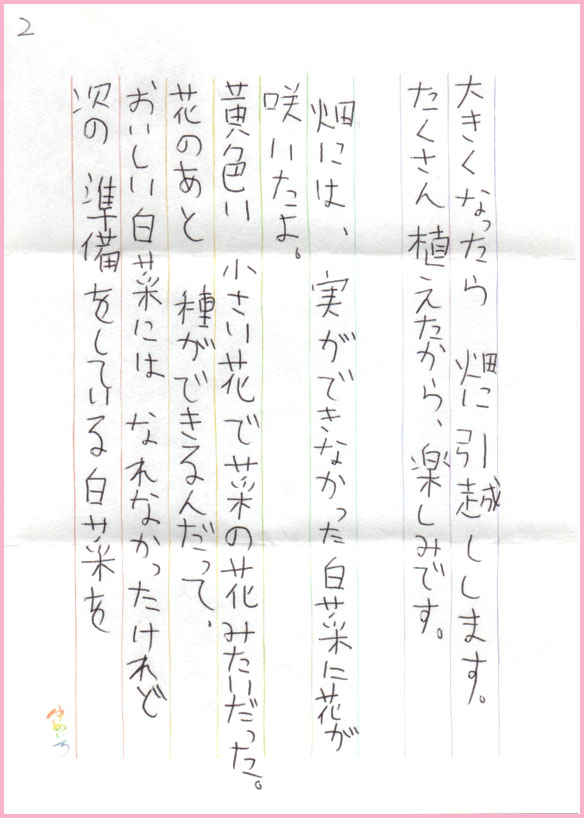 2
大きくなったら 畑に引越しします。
たくさん植えたから、楽しみです。
畑には、実ができなかった白菜に花が
咲いたよ。
黄色い 小さい花で菜の花みたいだった。
花のあと 種ができるんだって、
おいしい白菜には なれなかったけれど
次の 準備をしている白菜を